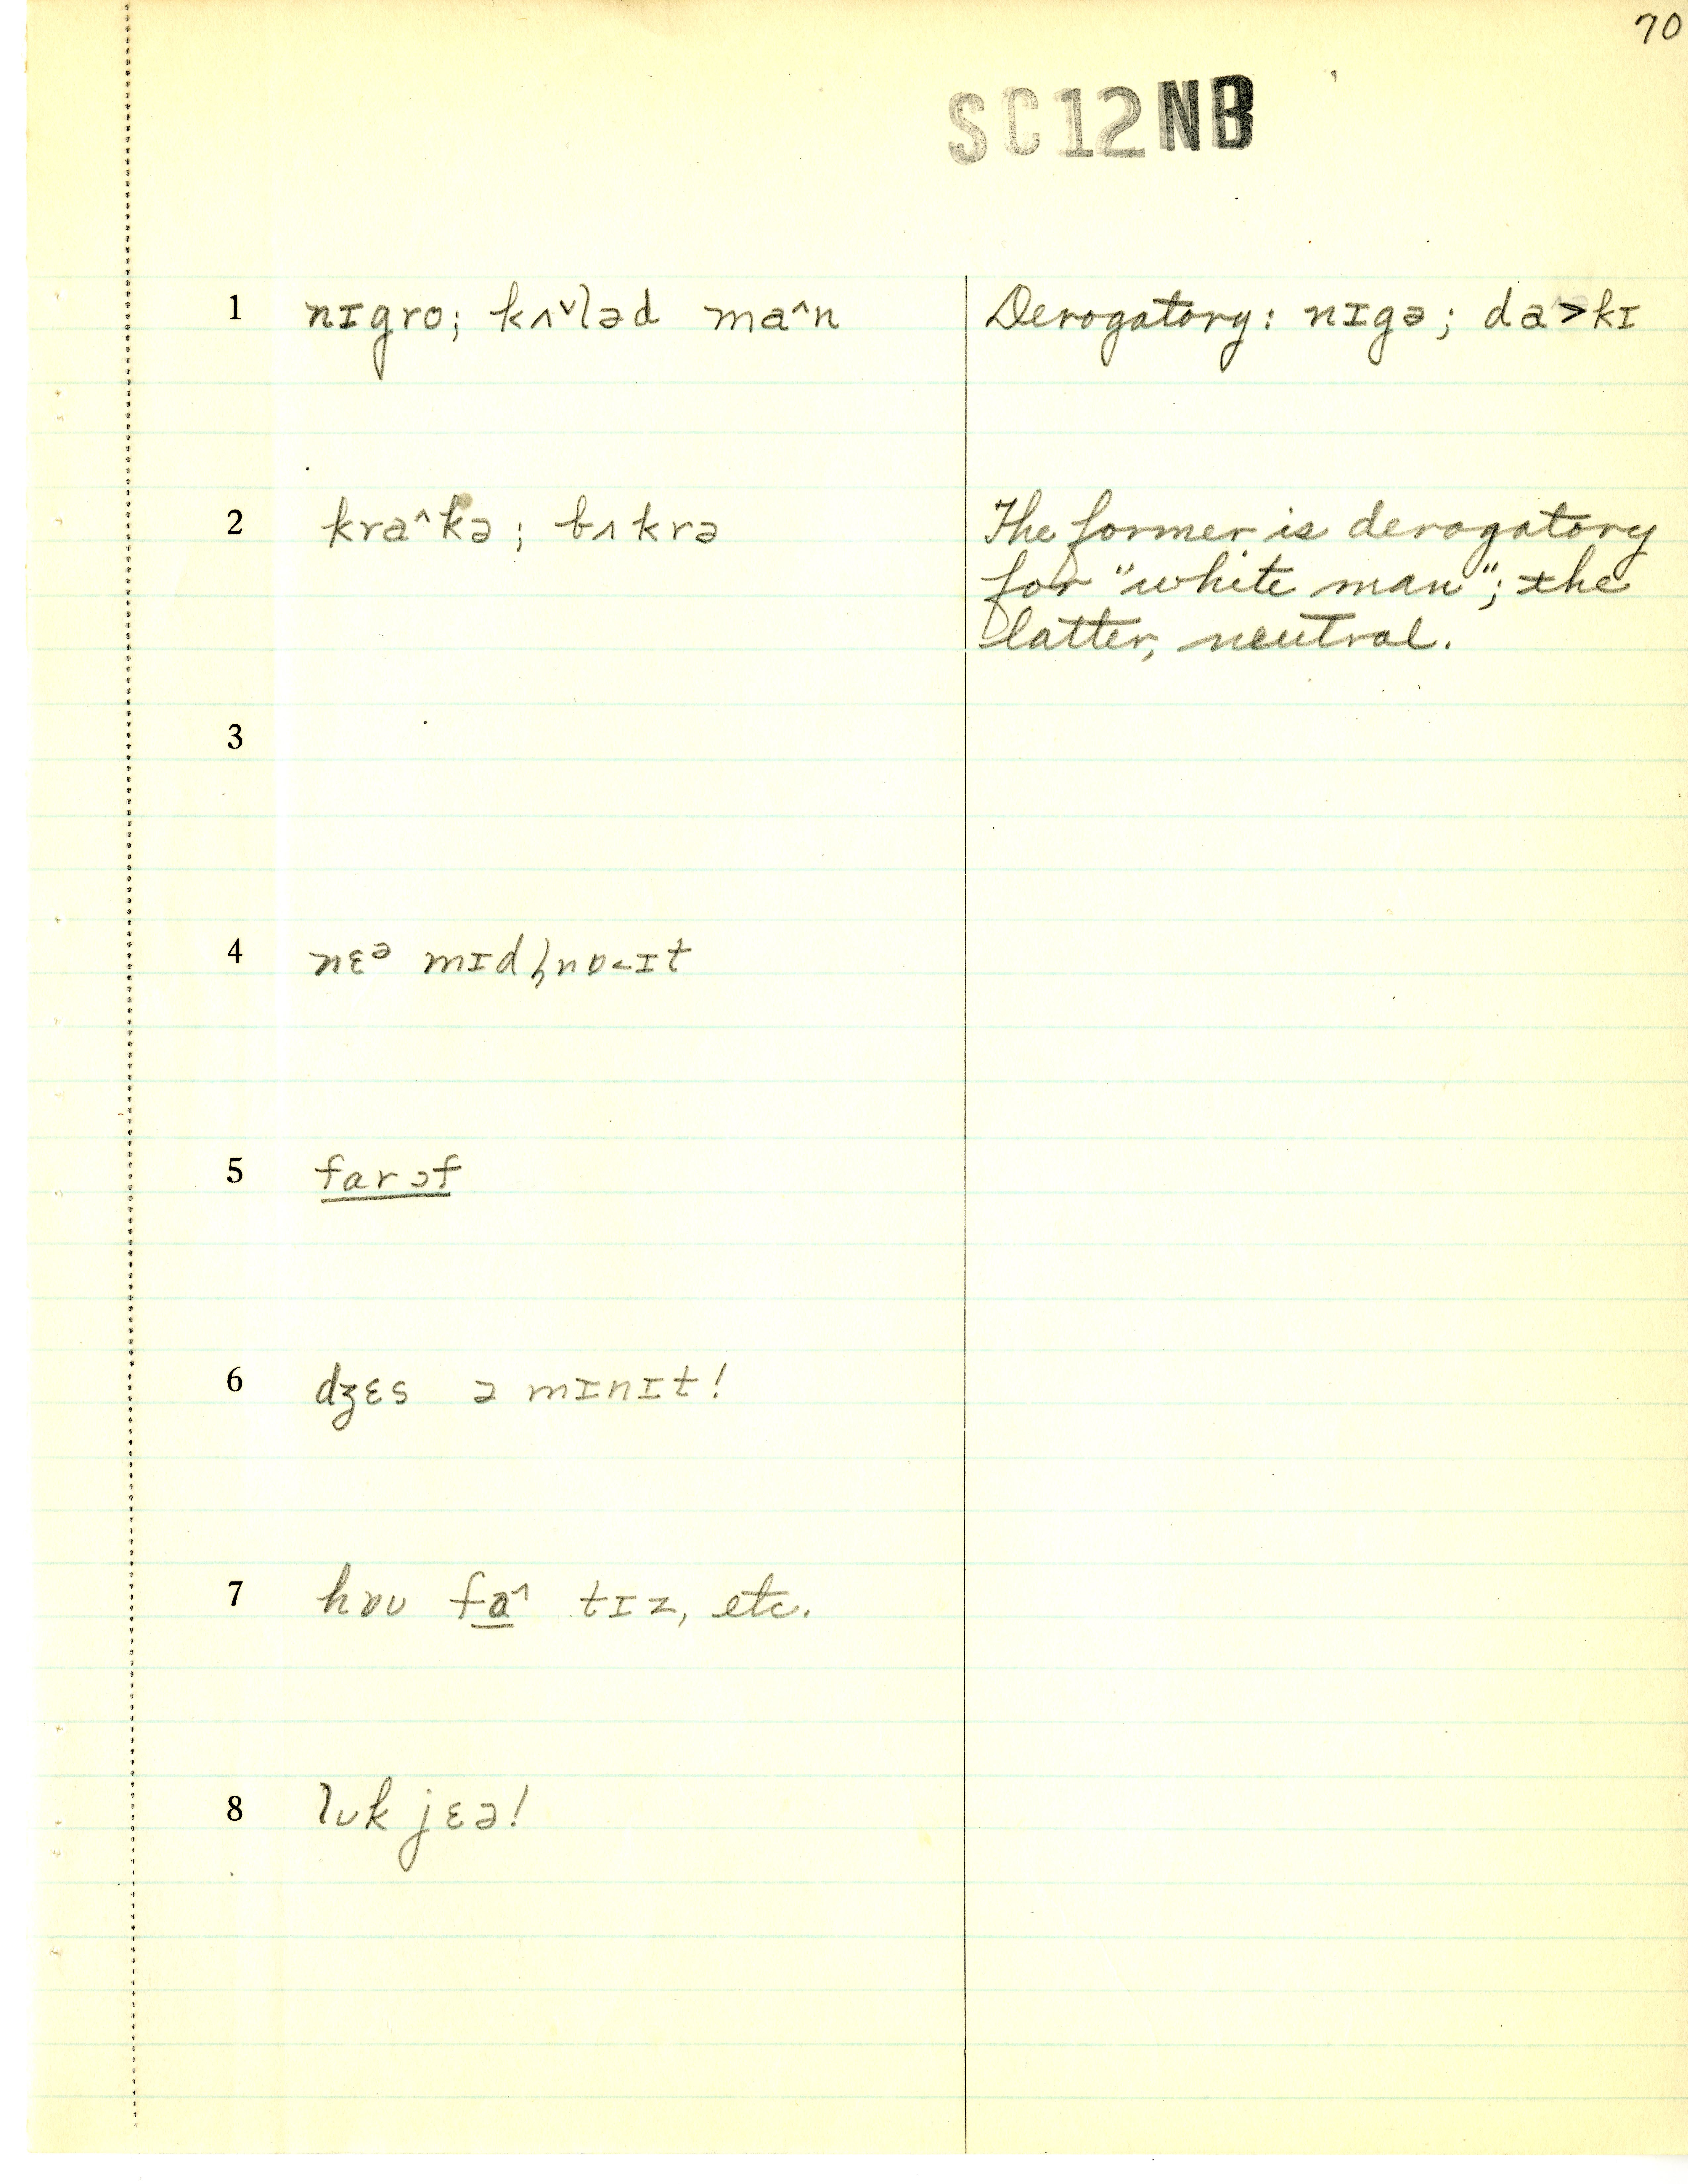 70
SC12NB
1 nɪgro; kʌ˅ləd ma˄n Derogatory: nɪgə; da˃kɪ
2 kra˄kə; bʌkrə The former is derogatory
for "white man"; the
latter, neutral.
3
4 nɛᵊ mɪdn̩ɒ˂ɪt
5 farəf
6 dʒɛs ə mɪnɪt!
7 hɒʊ fa˄ tɪz, etc.
8 lʊk jɛə!